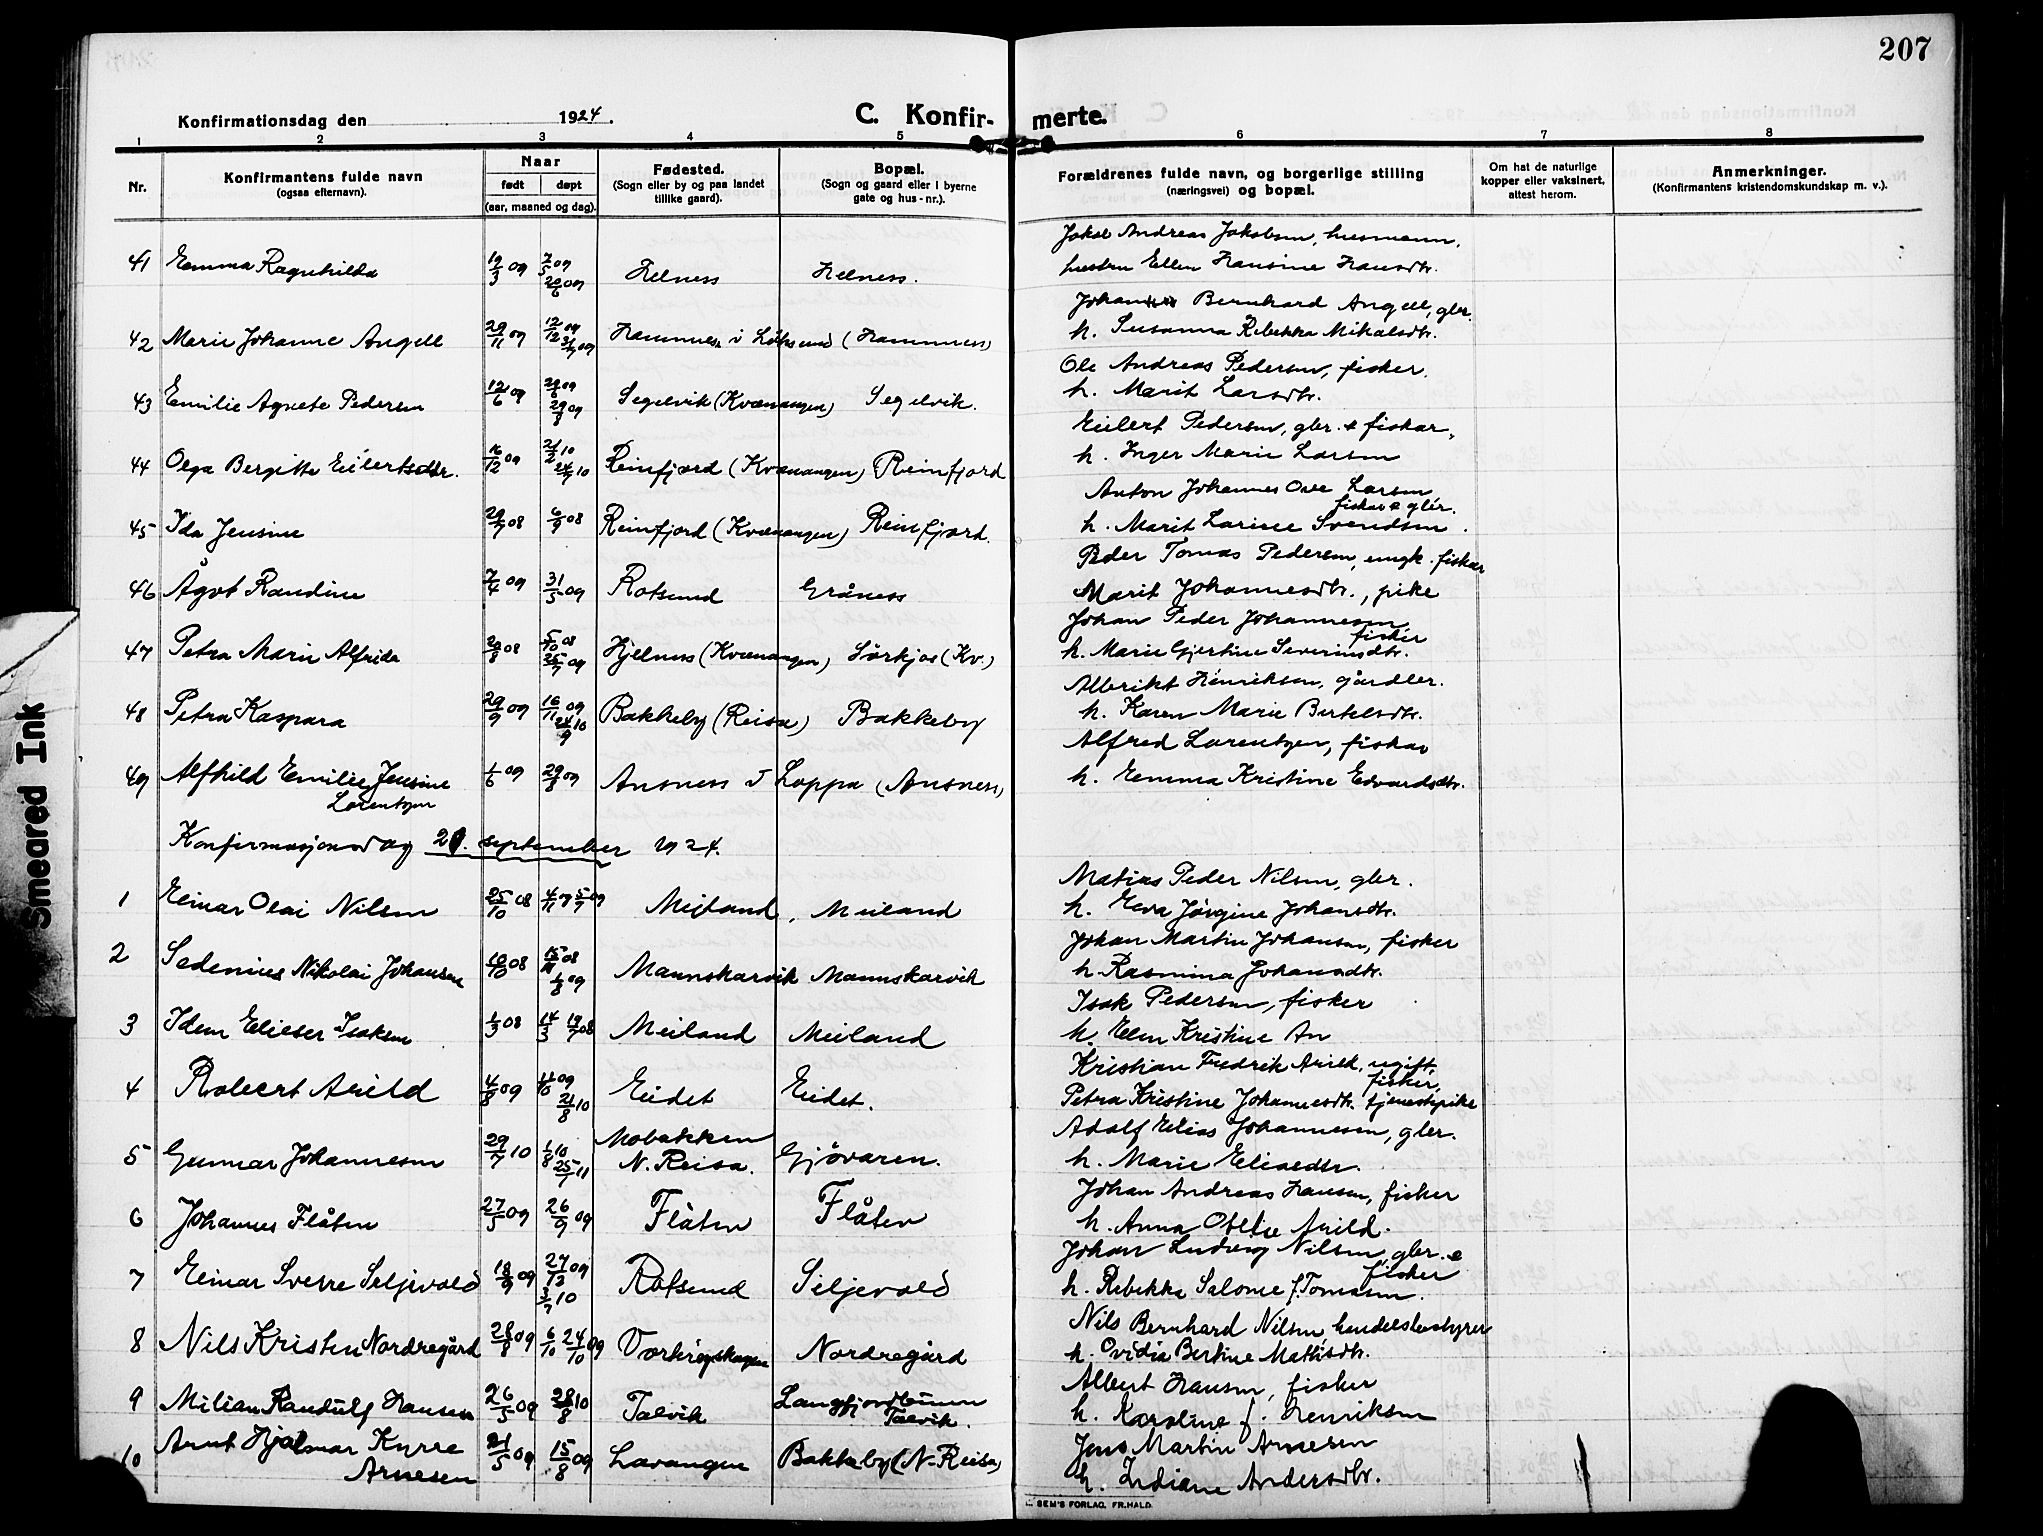 207
Konfirmationsdag den 1924.
C. Konfir- merte.
1 2 3 4 5 6 7 8
Nr.
Konfirmantens fulde navn
(ogsaa efternavn).
Naar
født døpt
(aar, maaned og dag).
Fødested.
(Sogn eller by og paa landet
tillike gaard).
Bopæl.
(Sogn og gaard eller i byerne
gate og hus-nr.).
Forældrenes fulde navn, og borgerlige stilling
(næringsvei) og bopæl.
Om hat de naturlige
kopper eller vaksinert,
attest herom.
Anmerkninger.
(Konfirmantens kristendomskundskap m. v.).
Jakob Andreas Jakobsen, husmann,
41 Emma Ragnhilda 19/3 09 7/5 09 Helness Helness. hustru Ellen Hansine Hansdtr.
20/6 09
Bernhard Angell, gbr.
42 Marie Johanne Angell 29/11 09 12/12 09 Hamnes i (Hamnes) h. Susanna Rebekka Mikalsdtr.
Ole Andreas Pedersen, fisker.
43 Emilie Agnete Pedersen 12/6 09 Segelvik (Kvænangen) Segelvik. h. Marit Larsdtr.
29/8 09
Eilert Pedersen, gbr. & fisker,
44 Olga Bergitte Eilertsdtr. 16/12 09 Reinfjord (Kvænangen) Reinfjord h. Inger Marie Larsen
Anton Johannes Ove Larsen
fisker & gbr.
45 Ida Jensine 29/7 08 6/9 08 Reinfjord (Kvænangen) Reinfjord. h. Marit Larine Svendsen.
Peder Tomas Pedersen, ungk. fisker
46 Ågot Randine 7/4 09 31/5 09 Rotsund Gråness Marit Johannesdtr., pike
Johan Peder Johannesen
fisker
47 Petra Marie Alfrida 5/10 08 Hjelness (Kvænangen) Sørkjos (Kv.) h. Marie Gjertine Severinsdtr.
25/7 09
Albrikt Henriksen, gårdbr.
48 Petra Kaspara 29/9 09 16/11 09 Bakkeby (Reisa) Bakkeby h. Karen Marie Bertelsdtr.
Alfred Lorentzen, fisker
49 Alfhild Emilie Jensine 1/6 09 29/8 09 Ansness i Loppa (Ansness) h. Emma Kristine Edvardsdtr.
Lorentzen
Konfirmasjonsdag september 1924.
Matias Peder Nilsen, gbr.
1 Einar Olai Nilsen 25/10 08 Meiland, Meiland h. Eva Jørgine Johansdtr.
Johan Martin Johansen, fisker
2 Sedenius Nikolai Johansen 10/10 08 15/11 08 Mannskarvik Mannskarvik h. Rasmina Johansdtr.
1/8 09
Isak Pedersen, fisker
3 Idem Elieser Isaksen 1/3 08 14/3 19/7 08 Meiland Meiland h. Elen Kristine An
Kristian Fredrik Arild, ugift,
fisker,
4 Robert Arild 4/8 09 11/10 09 Eidet Eidet. Petra Kristine Johannesdtr. tjenestepike
21/8 10
Adolf Elias Johannesen, gbr.
5 Gunnar Johannesen 29/7 10 1/8 10 Mobakken Gjøvaren. h. Marie Eliasdtr.
25/7 11 N. Reisa.
Johan Andreas Hansen, fisker
6 Johannes Flåten 27/5 09 26/9 09 Flåten Flåten h. Anna Otelie Arild.
Johan Ludvig Nilsen, gbr. &
fisker
7 Einar Sverre Seljevold 18/9 09 27/12 09 Rotsund Seljevold h. Rebekka Salome f. Tomasen.
3/7 10
Nils Bernhard Nilsen, handelsbestyrer
8 Nils Kristen Nordregård 28/8 09 6/10 24/10 09 Nordregård h. Ovidia Bertine Mathisdtr.
Albert Hansen, fisker
9 Milian Randulf Hansen 26/5 09 28/8 10 Talvik Langfjordbunn h. Karoline f. Henriksen
Talvik.
Jens Martin Arnesen
10 Arnt Hjalmar Kyrre 21/5 09 15/8 09 Lavangen Bakkeby (N-Reisa) h. Indiane Andersdtr.
Arnesen
SEM'S FORLAG, FR.HALD.
Smeared Ink